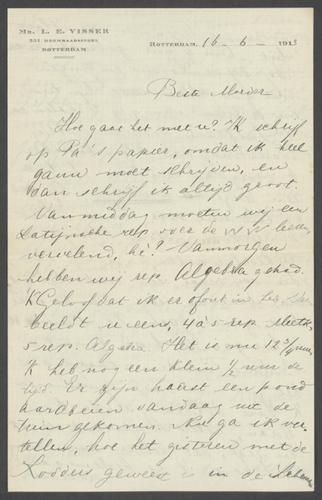 Mr. L. E. VISSER
ROTTERDAM
ROTTERDAM, 16-6-1913
Beste Moeder.
Hoe gaat het met u? Ik schrijf
op Pa's papier, omdat ik heel
gauw moet schrijven, en
dan schrijf ik altijd groot.
Van middag moeten wij een
Latijnsche rep. over de
vervelend, hè? Vanmorgen
hebben wij rep. Algebra gehad.
'k Geloof dat ik er
u eens, 4 à 5 rep.
5 rep. Algebra. Het is nu 12
'k heb nog een klein ½ uur de
tijd. Er zijn haast een pond
aardbeien vandaag uit de
tuin gekomen. Nu ga ik ver-
tellen, hoe het gisteren met de
geweest is in de